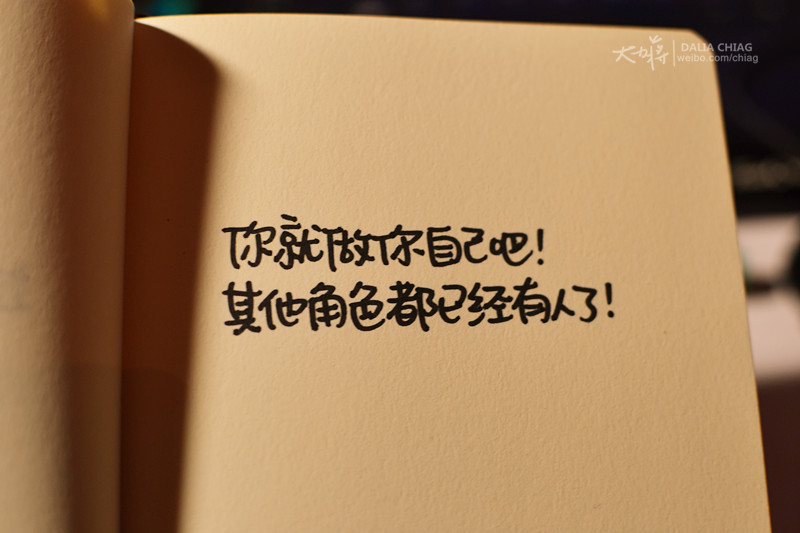 大蒋 DALIA CHIAG
weibo.com/chiag
你就做你自己吧!
其他角色都已经有人了!